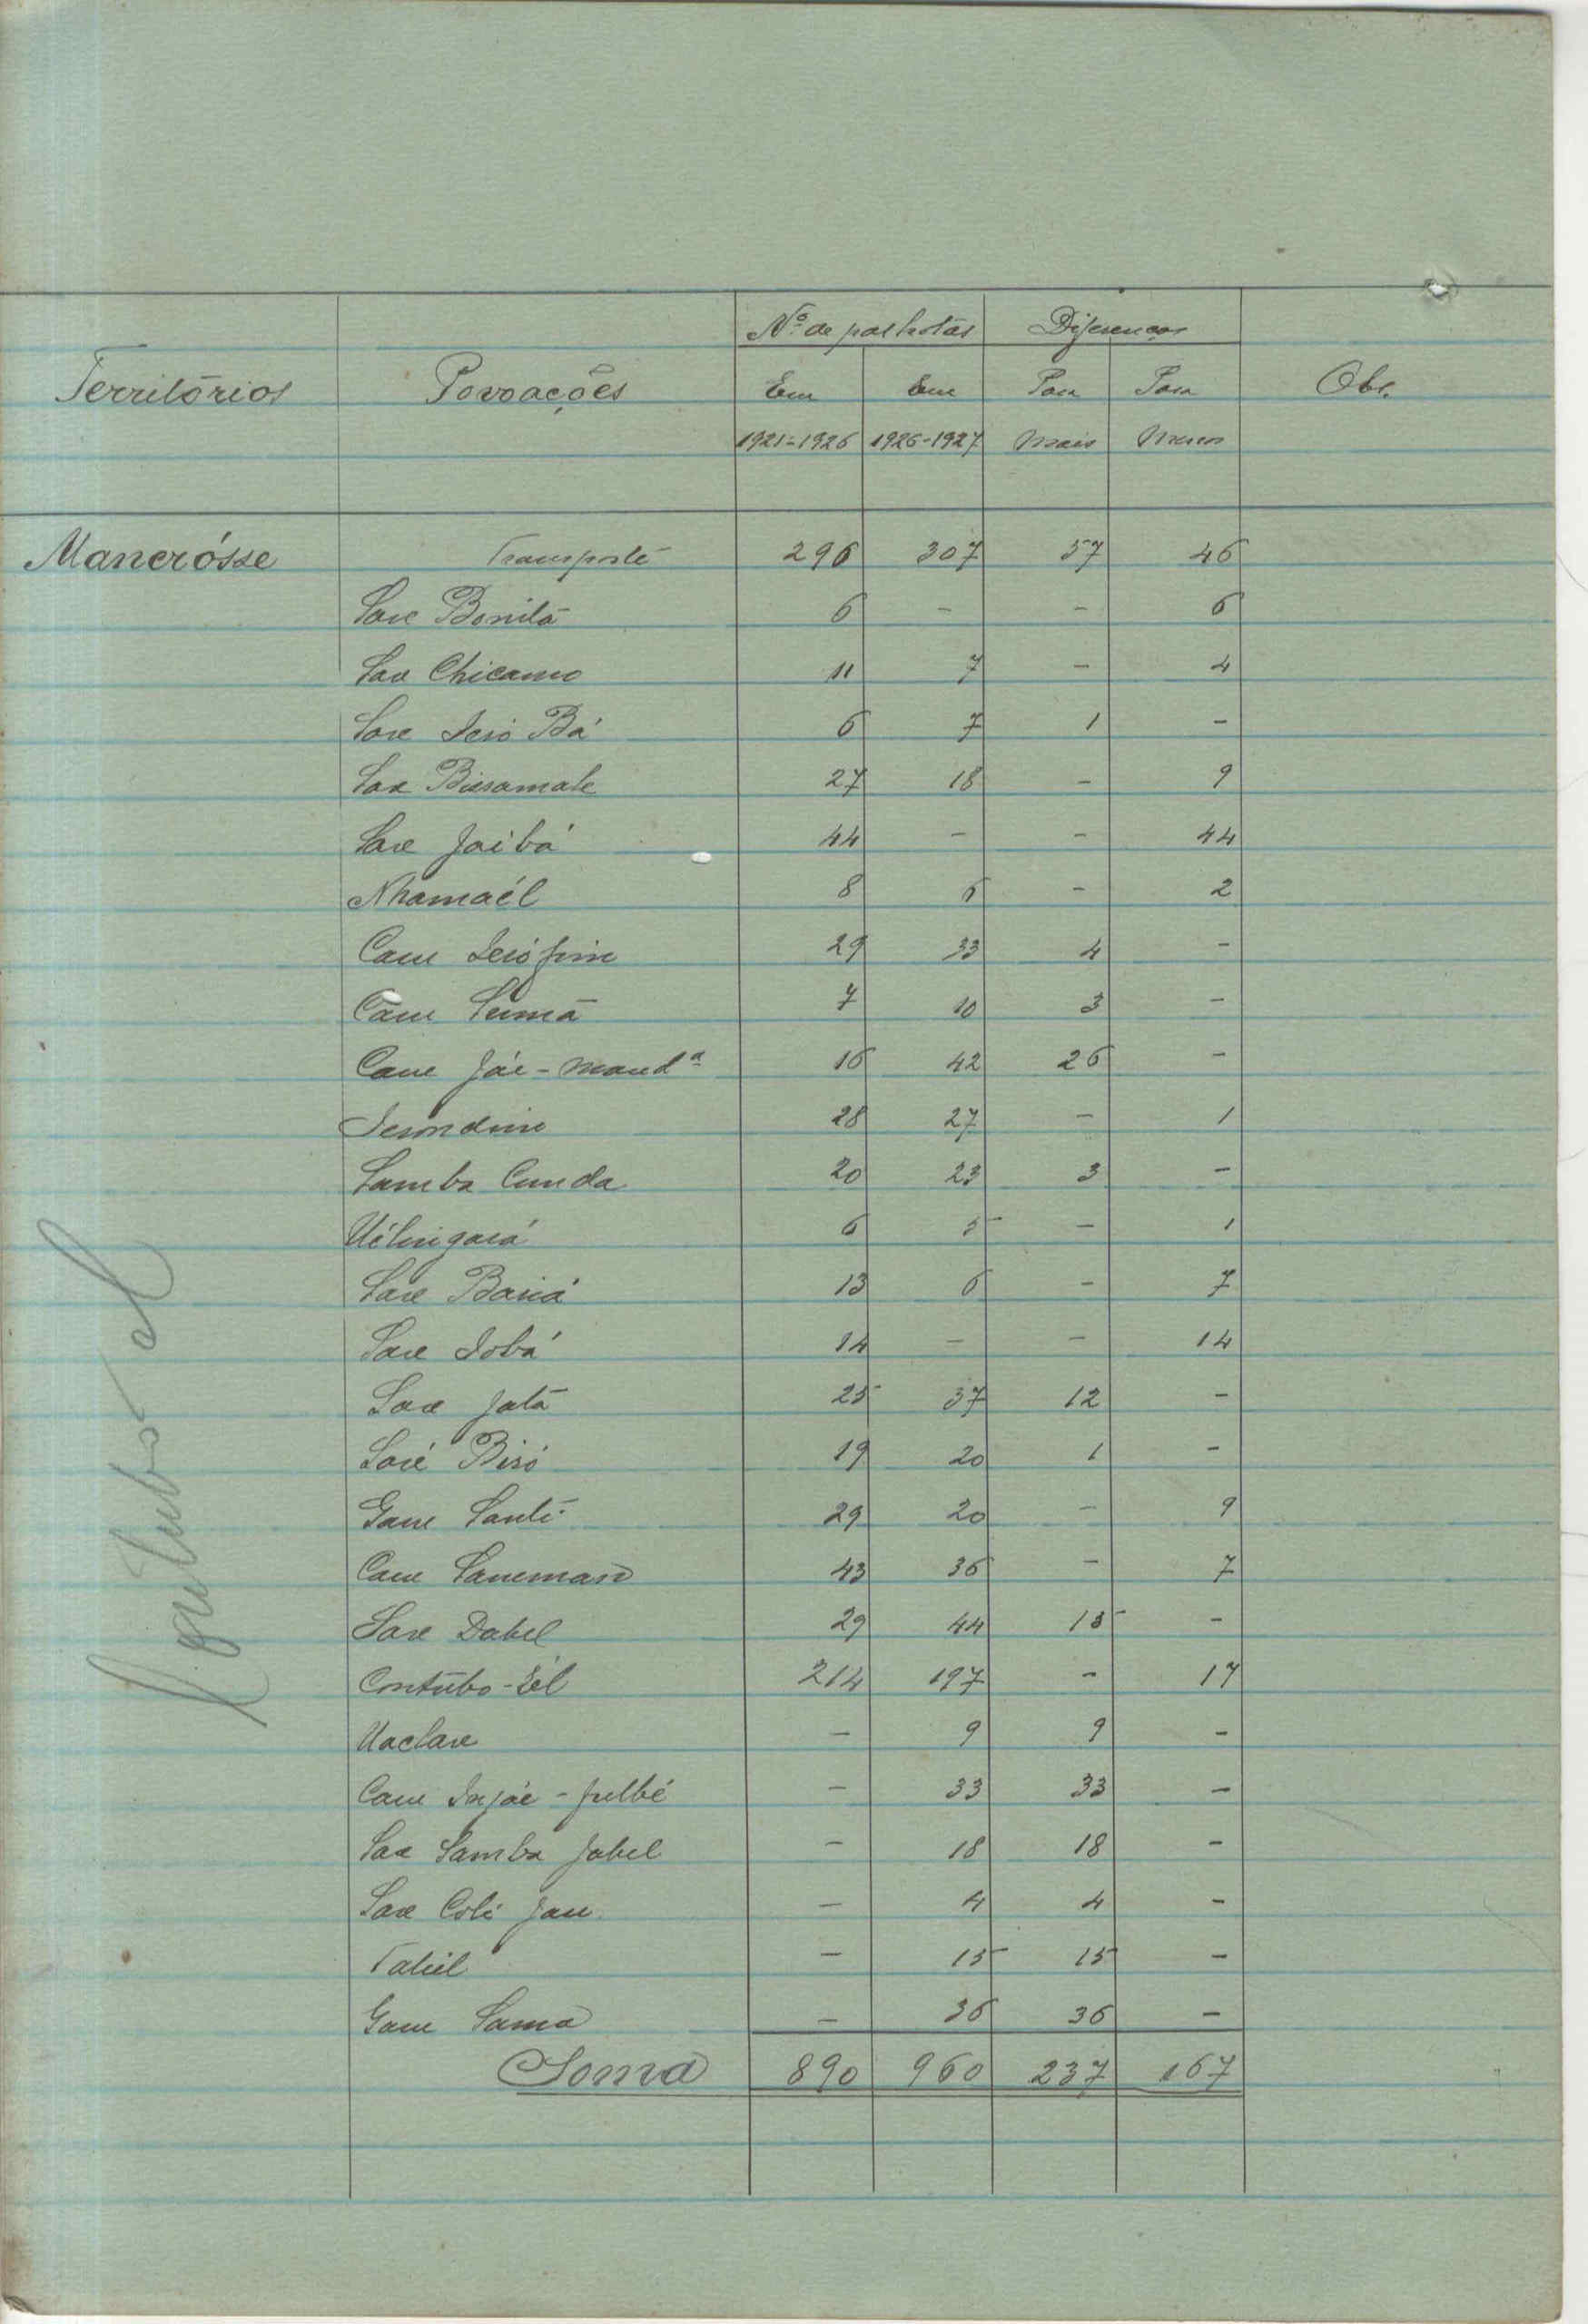 Nº de palhotas Diferenças
Territórios Povoações Em Em Para Para Obs.
1921-1926 1926-1927 mais menos
Mancrósse Transporte 296 307 57 46
Sare Bonitá 6 - - 6
Sare Chicamo 11 7 - 4
Sare Seió Bá 6 7 1 -
Sare Bissamale 27 18 - 9
Sare Jaibá 44 - - 44
Nhamaél 8 6 - 2
Cam 29 33 4 -
Cam Sumá 7 10 3 -
Cam Jáe-mandª 16 42 26 -
28 27 - 1
Samba Cunda 20 23 3 -
Uélingará 6 5 - 1
Sare Bariá 13 6 - 7
Sare Iobá 14 - - 14
Sare Jatá 25 37 12 -
Saré Biró 19 20 1 -
Gam Santi 29 20 - 9
Cam Saneman 43 36 - 7
Sare Dabel 29 44 15 -
Contubo-El 214 197 - 17
Uaclare - 9 9 -
Cam Injáe-fulbé - 33 33 -
Sare Samba Jabel - 18 18 -
Sare Coli Jau - 4 4 -
Tabiel - 15 15 -
Gam Sama - 36 36 -
Soma 890 960 237 167
Contubo el